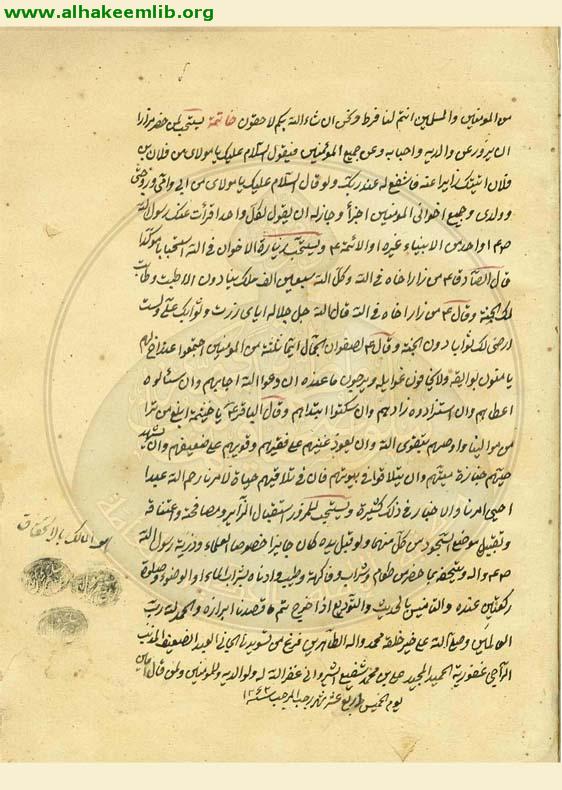 www.alhakeemlib.org
من المؤمنين والمسلمين انتم لنا فرط ونحن ان شاء الله بكم لاحقون خاتمة يستحب لمن حضر مزارا
ان يزور عن والديه واحبابه وعن جميع المؤمنين فيقول السلام عليك يا مولاى من فلان بن
فلان اتيتك زايرا عنه فاشفع له عند ربك ولو قال السلام عليك يا مولاى من ابى وامى وزوجتى
وولدى وجميع اخوانى المؤمنين اجزأ وجاز له ان يقول لكل واحد اقرأت عنك رسول الله
ص ع او احد من الانبياء وغيره او الائمة ع ويستحب زيارة الاخوان فى الله استحبابا مؤكدا
قال الصادق ع من زار اخاه فى الله وكل الله سبعين الف ملك ينادون الا طبت وطابت
لك الجنة وقال ع من زار اخاه فى الله قال الله جل جلاله اياى زرت وثوابك على ولست
ارضى لك ثوابا دون الجنة وقال ع لصفوان الجمال ايما ثلثة من المؤمنين اجتمعوا عند اخ لهم
يامنون بوايقه ولا يخافون غوايله ويرجون ما عنده ان دعوا الله اجابهم وان سئالوه
اعطاهم وان استزادوه زادهم وان سكتوا ابتداهم وقال الباقر ع يا خيثمة ابلغ من ترا
من موالينا واوصهم بتقوى الله وان يعود غنيهم على فقيرهم وقويهم على ضعيفهم وان يشهد
حيهم جنازة ميتهم وان يتلاقوا فى بيوتهم فان فى تلاقيهم حياة لامرنا رحم الله عبدا
احيى امرنا والاخبار فى ذلك كثيرة ويستحب للمزور استقبال الزاير ومصافحة واعتناقه
وتقبيل موضع السجود من كل منهما ولو قبل يده كان جايزا خصوصا العلماء وذرية رسول الله
ص ع واله ويتحفه بما حضر من طعام وشراب وفاكهة وطيب وادناه شراب الماء او الوضوء وصلوة
ركعتين عنده والتانيس بالحديث والتوديع اذا خرج تم ما قصدنا ابرازه والحمد لله رب
العالمين وصلى الله على خير خلقه محمد واله الطاهرين فرغ من تسويده الجانى العبد الضعيف المذنب
الراجى عفو ربه الحميد المجيد على بن محمد شفيع الشيروانى غفر الله له ولوالديه وللمؤمنين ولمن قال امين
يوم الخميس رابع عشر شهر رجب المرجب سنة ١٢٤٣
هو المالك بالاستحقاق